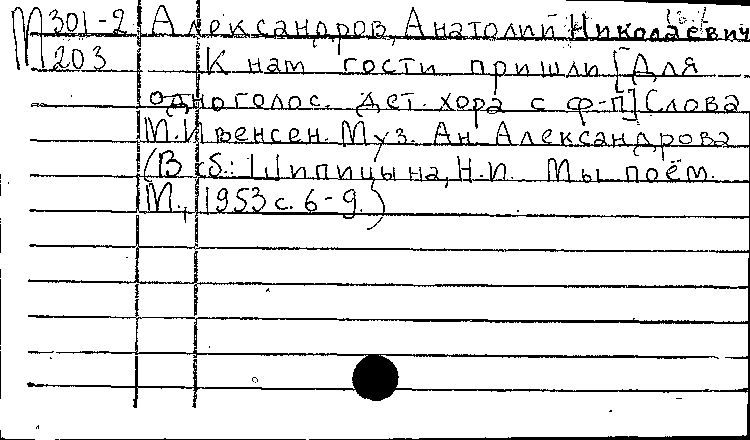 М 301-2 Александров, Анатолий Николаевич
203 К нам гости пришли [Для
одноголос. дет. хора с ф-п] Слова
М. Ивенсен. Муз. Ан. Александрова
(В сб.: Шипицына, Н.П. Мы поём.
М., 1953 с. 6-9.)